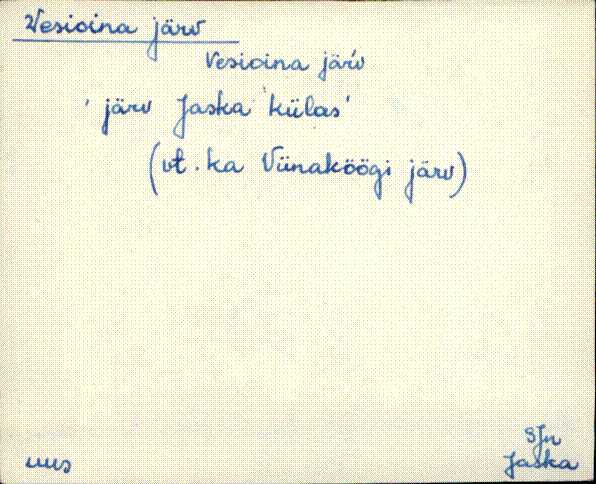 Vesioina järv
Vesioina jäŕv
'järv Jaska külas'
(vt. ka Viinaköögi järv)
SJn
uus
Jaska